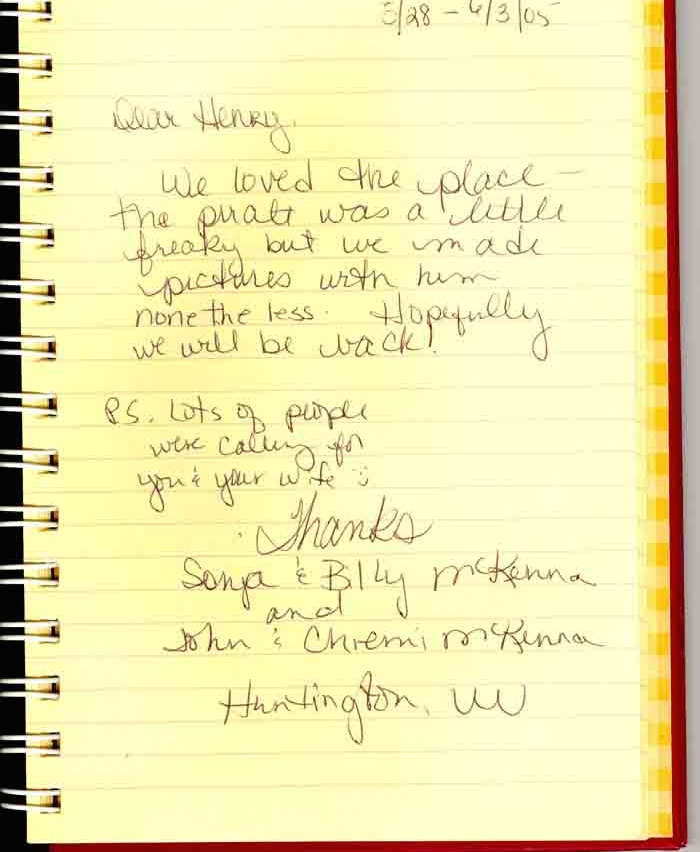 5/28 - 6/3/05
Dear Henry,
We loved the place -
the pirate was a little
freaky but we made
pictures with him
none the less. Hopefully
we will be back!
P.S. Lots of people
were calling for
you & your wife :)
Thanks
Sonja & Billy McKenna
and
John & Chremi McKenna
Huntington, WV